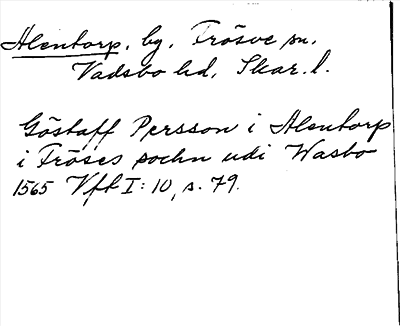 Alentorp, by, Frösve sn,
Vadsbo hd, Skar. l.
Göstaff Persson i Alentorp
i Fröses sochn udi Wasbo
1565 Vfl I: 10, s. 79.